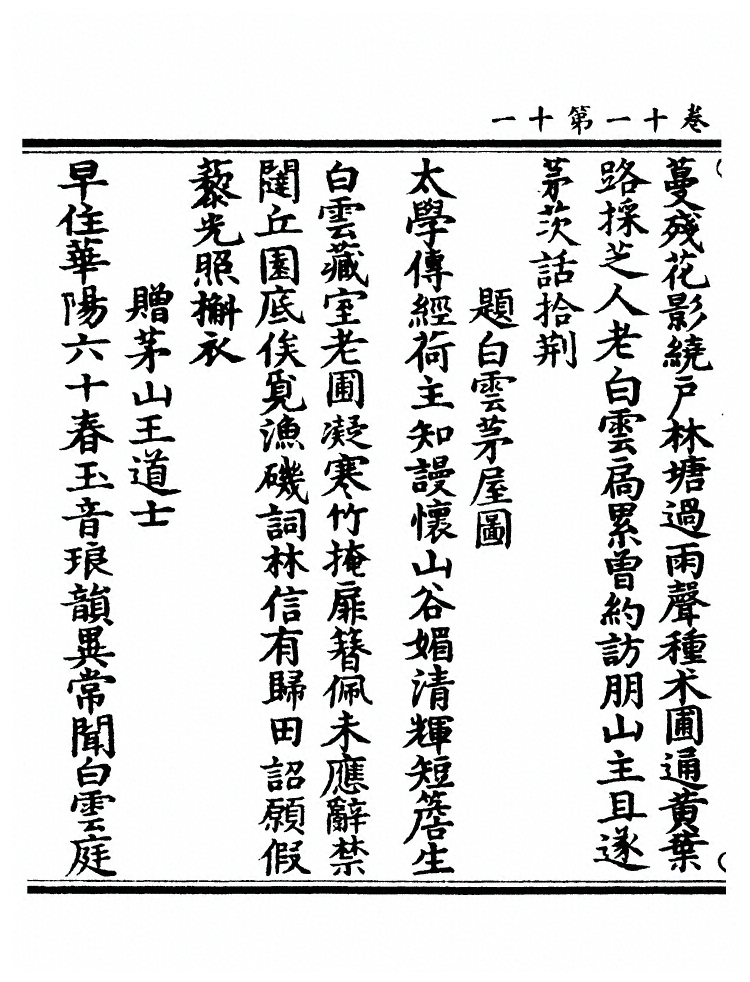 卷十一第十一
蔓殘花影繞戶林塘過雨聲種朮圃通黃葉
路採芝人老白雲扃累曾約訪朋山主且遂
茅茨話拾荆
題白雲茅屋圖
太學傳經荷主知謾懷山谷媚清輝短簷生
白雲藏室老圃凝寒竹掩扉簪佩未應辭禁
闥丘園底俟覓漁磯詞林信有歸田詔願假
藜光照槲衣
贈茅山王道士
早住華陽六十春玉音琅韻異常聞白雲庭